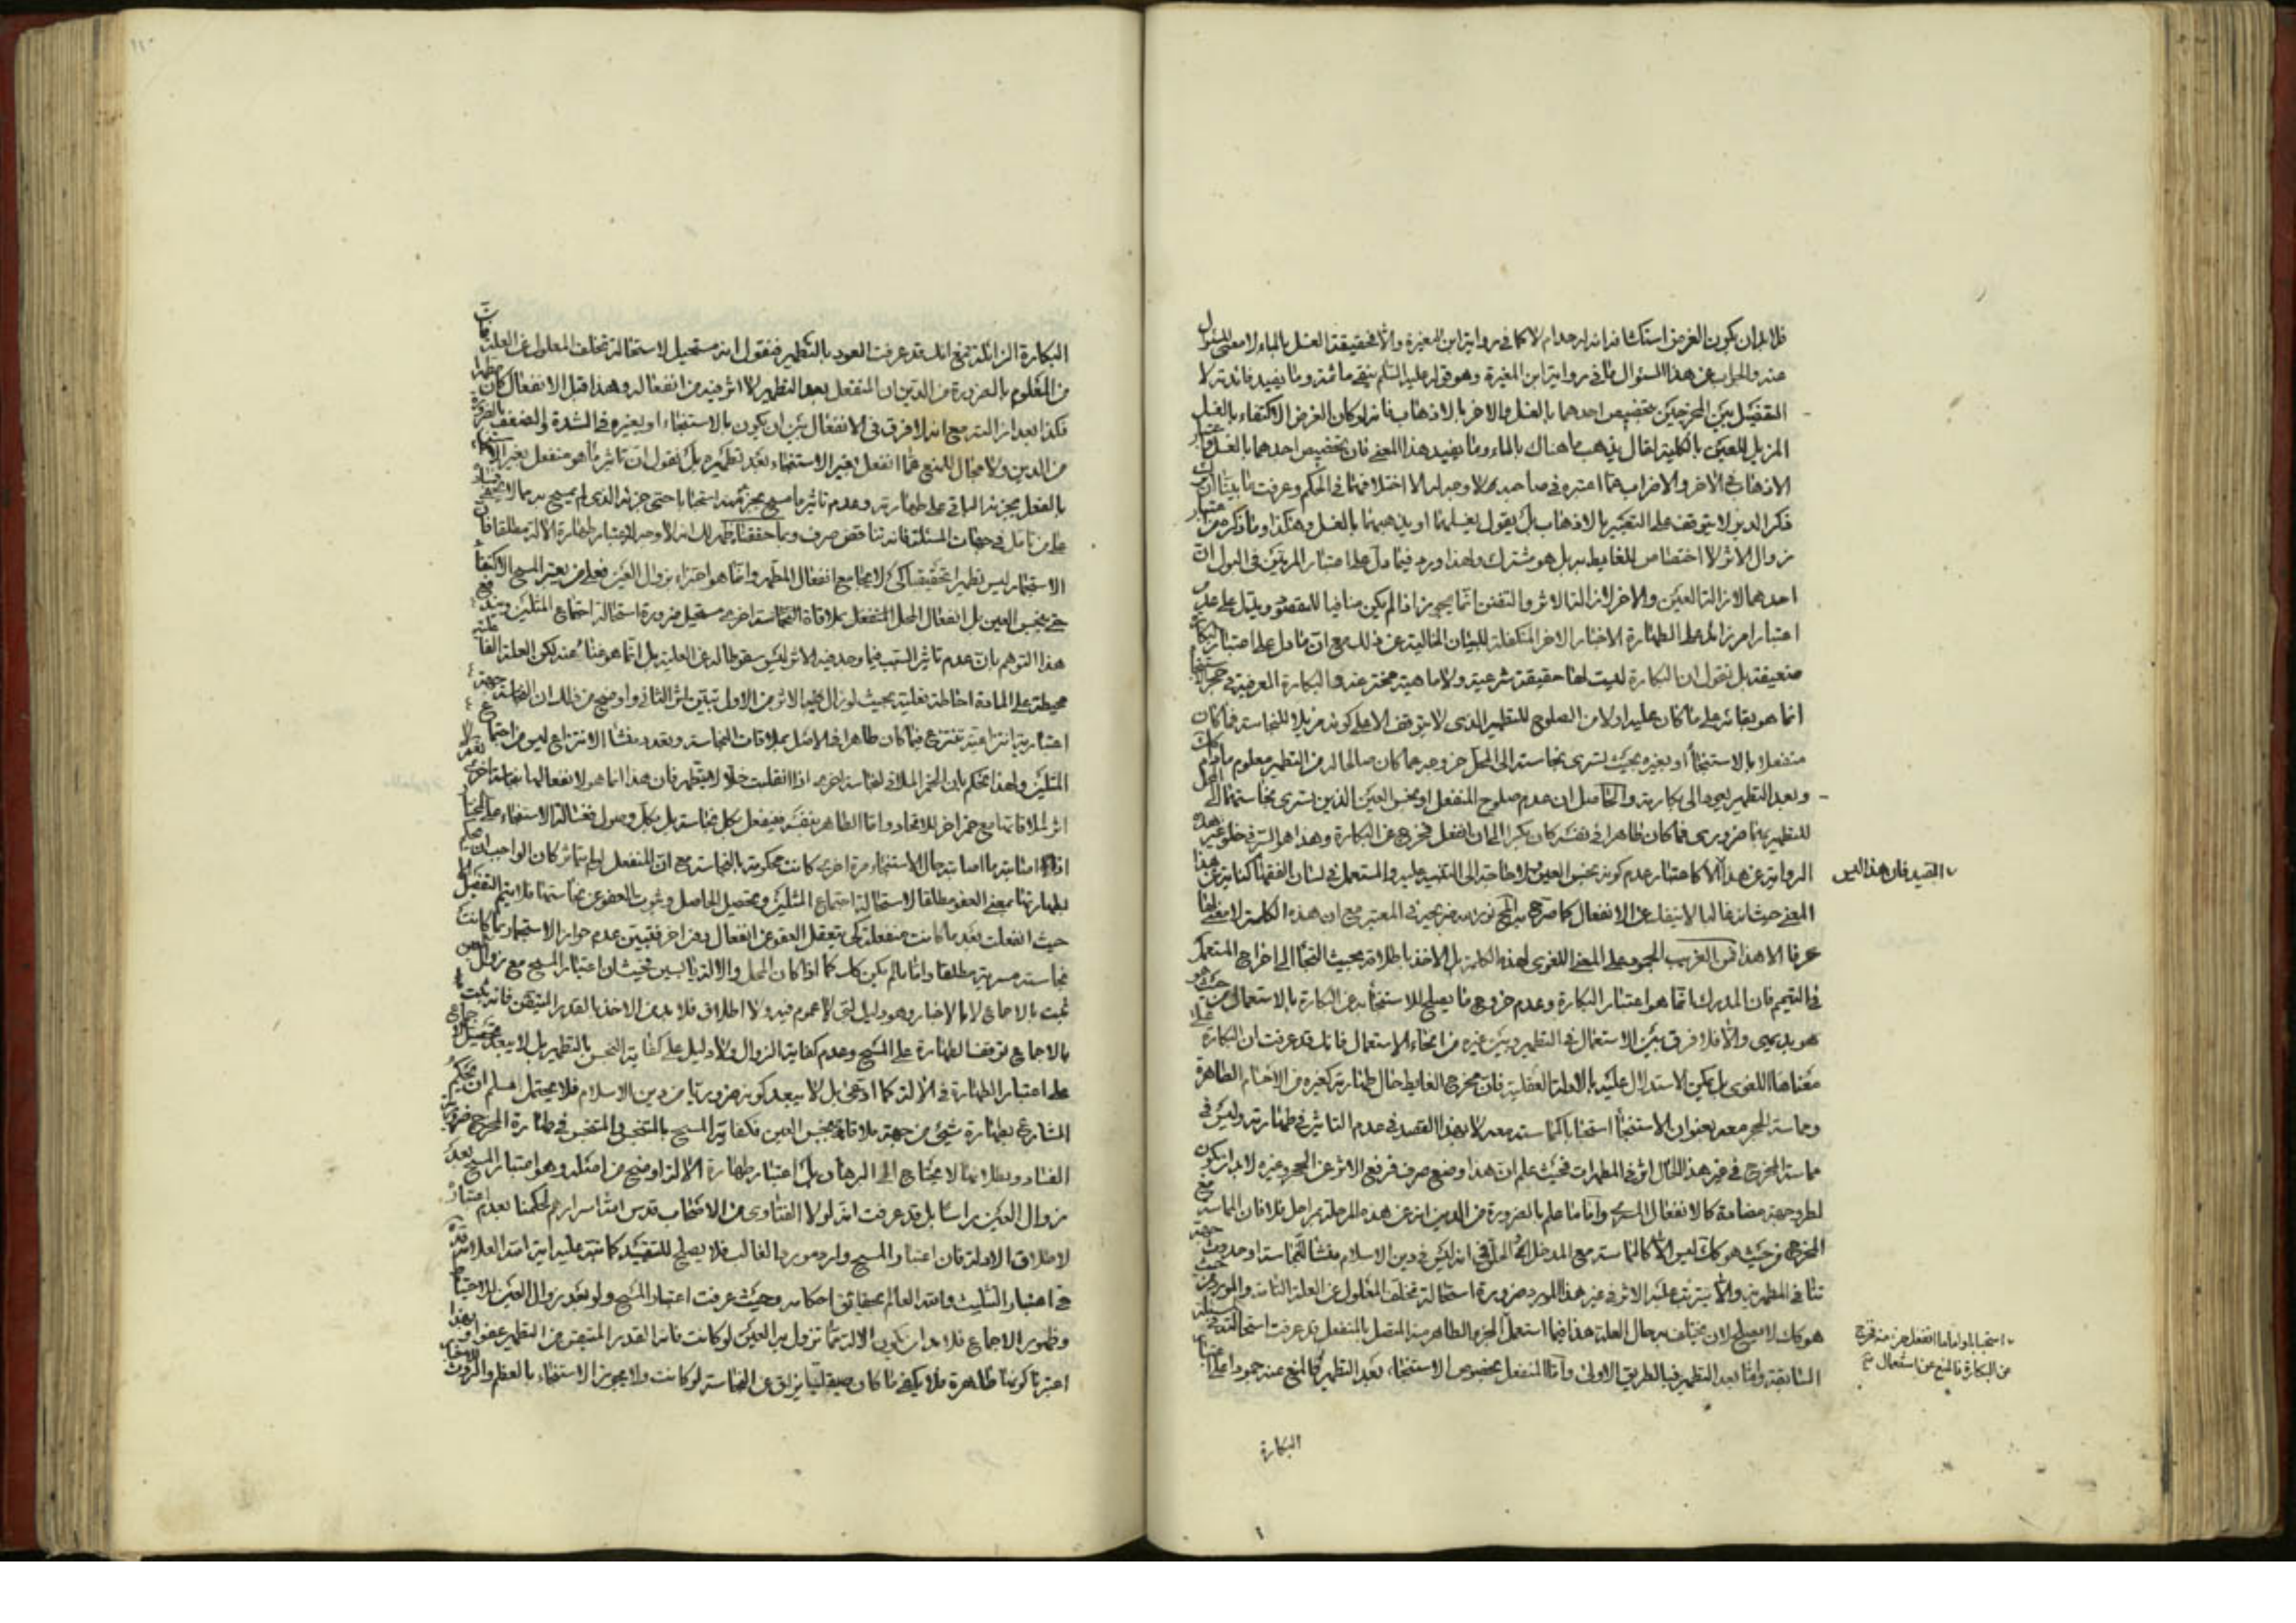 فلابد ان يكون الغرض استكشاف انه له حد ام لا كما في رواية ابن المغيرة والا فحقيقة الغسل بالماء لا معنى للسؤال
عنه والجواب عن هذا السؤال ما في رواية ابن المغيرة وهو قوله عليه السلم ينقى ماثمة وما يفيد فائدته لا
التفصيل بين المخرجين بتخصيص احدهما بالغسل والاخر بالاذهاب فانه لو كان الغرض الاكتفاء بالغسل
المزيل للعين بالكلية لقال يذهب ما هناك بالماء وما يفيد هذا المعنى فان تخصيص احدهما بالغسل
الاذهاب في الاخر والاغراب عما اعتبره في صاحبه مما لا وجه له الا اختلافهما في الحكم وعرفت
ذكر الدبر لا يتوقف على التعبير بالاذهاب بل يقول يغسلهما او يذهبهما بالغسل وهكذا وما ذكر من
زوال الاثر لا اختصاص للغايط به بل هو مشترك ولهذا ورد فيما دل على اعتبار المرتين في البول ان
احدهما لازالة العين والاخر لازالة الاثر والتفنن انما يجوز اذا لم يكن منافيا للمقصود ويدل على عدم
اعتبار امر زائد على الطهارة الاخبار الاخر المتكفلة للبيان الخالية عن ذلك مع ان ما دل على اعتبار البكارة
ضعيفة بل نقول ان البكارة ليست لها حقيقة شرعية ولا ماهية مخترعة والبكارة المعرضة في حجر الاستنجاء
انما هو بقائه على ما كان عليه اولا من الصلوح للتطهير الذي لا يتوقف الا على كونه مزيلا للنجاسة فما كان
منفعلا بالاستنجاء او بغيره بحيث تسرى نجاسته الى المحل خروجه عما كان صالحا له من التطهير معلوم مادام كك
وبعد التطهير يعود الى بكارته والحاصل ان عدم صلوح المنفعل او نجس العين الذين يسرى نجاستهما الى المحل
للتطهير بهما ضرورى فما كان طاهرا في نفسه كان بكرا الى ان انفعل فخرج عن البكارة وهذا هو السر في خلو غير هذه
الرواية عن هذا الاعتبار عدم كونه نجس العين فلا حاجة الى التنبيه عليه والمستعمل في لسان الفقهاء كناية عن هذا
٧ التقييد فان هذا القيد
المعنى حيث انه غالبا لا ينفك عن الانفعال كما صرح به المحقق نور ضريحه في المعتبر مع ان هذه الكلمة لا معنى لها
عرفا الا هذا فمن الغريب الجمود على المعنى اللغوى لهذه الكلمة بل الاخذ باطلاقه بحيث التجأ الى اخراج المستعمل
في التيمم فان المدرك انما هو اعتبار البكارة وعدم خروج ما يصلح للاستنجاء به عن البكارة بالاستعمال من حيث هو
هو بديهى والا فلا فرق بين الاستعمال في التطهير وبين غيره من انحاء الاستعمال فانك قد عرفت ان البكارة
معناها اللغوى بل يمكن الاستدلال عليه بالادلة العقلية فان مخرج الغايط حال طهارته كغيره من الاجسام الطاهرة
ومماسة الحجر معه بعنوان الاستنجاء استحبابا كمماسته معه لا بهذا القصد في عدم التاثير في طهارته وليس في
مماسة المخرج في غير هذا الحال اثر في المطهرات فحيث علم ان هذا وضع صرف فرفع الاثر عن الحجر وغيره لابد ان يكون
لطرو جهة مضادة كالانفعال المسرى واما ما علم بالضرورة من الدين انه عن هذه المرحلة بمراحل فلا فان المماسة مع
المخرج من حيث هو كك ليس الا كالمماسة مع المدخل او الحلق في انه ليس في دين الاسلام منشا للنجاسة او حدوث جهة
تنافي المطهرية والا يترتب عليه الاثر في غير هذا المورد ضرورة استحالة تخلف المعلول عن العلة التامة والمورد من حيث
هو كك لا يصلح لان يختلف به حال العلة هذا فيما استعمل الجزء الطاهر منه المتصل بالمنفعل قد عرفت استحالته
٧ استحبابا واما ما انفعل جزء منه فخرج
عن البكارة فالمنع عن استعمال
السابقة واما بعد التطهير فبالطريق الاولى واما المنفعل بخصوص الاستنجاء بعد التطهير فالمنع عنه جمودا على
البكارة
البكارة الزائلة تمنع انك قد عرفت العود بالتطهير فنقول انه مستحيل لاستحالة تخلف المعلول عن العلة فان
من المعلوم بالضرورة من الدين ان المنفعل بعد التطهير لا اثر فيه من انفعاله وهذا قبل الانفعال كان مطهرا
فكذا بعد ازالته مع انه لا فرق في الانفعال بين ان يكون بالاستنجاء او بغيره في الشدة والضعف بالضرورة
من الدين ولا مجال للمنع عما انفعل بغير الاستنجاء بعد تطهيره بل نقول ان تاثير ما هو منفعل بغير الاستنجاء
بالفعل بجزئه الباقي على طهارته وعدم تاثير ما مسح بجزء منه استحبابا حتى جزئه الذى لم يمسح به مما لا يخفى فساده
على من تامل في جهات المسئلة فانه تناقض صرف وبما حققنا يظهر لك انه لا وجه لاعتبار طهارة الالة مطلقا فان
الاستجمار ليس تطهيرا تحقيقيا كى لا يجامع انفعال المطهر وانما هو اجتزاء بزوال العين فعلى من يعتبر المسح الاكتفاء
حتى بنجس العين بل انفعال المحل المنفعل بملاقاة النجاسة اخرى مستحيل ضرورة استحالة اجتماع المثلين ويندفع
هذا التوهم بان عدم تاثير السبب فيما وجد فيه الاثر ليس سقوطا له عن العلية بل انما هو غناء عنه لكن العلة
محيطة على المادة احاطة فعلية بحيث لو زال عنها الاثر من الاول تبين اثر الثاني واوضح من ذلك ان النجاسة جهة
اعتبارية انتزاعية تنتزع فيما كان طاهرا في الاصل بملاقات النجاسة وتعدد منشا الانتزاع ليس من اجتماع
المثلين ولهذا نحكم بان الخمر الملاقى لنجاسة اخرى اذا انقلبت خلا لا يطهر فان هذا انما هو لانفعالها بنجاسة اخرى
اثر الملاقاتها مع خمر اخر للاتحاد واما الطاهر بنفسه فينفعل بكل نجاسة بل بكل وصول فغسالة الاستنجاء
اذا اصابته ما اصابته حال الاستنجاء مرة اخرى كانت محكومة بالنجاسة مع ان المنفعل لو لم يتاثر كان الواجب
بطهارتها بمعنى العفو مطلقا لاستحالة اجتماع المثلين وتحصيل الحاصل وثبوت العفو عن نجاستها فلا يتم التفصيل
حيث انفعلت بعد ما كانت منفعلة كى يتعقل العفو عن انفعال دون اخر فتبين عدم جواز الاستجمار بما كانت
نجاسته مسرية مطلقا واما ما لم يكن كك كما اذا كان المحل والالة يابسين فحيث ان اعتبار المسح مع زوال العين
ثبت بالاجماع لا بالاخبار وهو دليل لبى لا عموم فيه ولا اطلاق فلابد من الاخذ بالقدر المتيقن فانه ثبت
بالاجماع توقف الطهارة على المسح وعدم كفاية الزوال ولا دليل على كفاية النجس بالتطهير بل لا يبعد تحصيل الاجماع
على اعتبار الطهارة في الالة كما ادعى بل لا يبعد كونه ضروريا من دين الاسلام فلا يحتمل مسلم ان يحكم
الشارع بطهارة شيئ من جهة ملاقاة نجس العين فكفاية المسح بالنجس والمتنجس في طهارة المخرج ضرورية
الفساد وبطلانها لا يحتاج الى البرهان بل اعتبار طهارة الالة اوضح من اصله وهو اعتبار المسح بعد
زوال العين براسا بل قد عرفت انه لولا الفتاوى من الاصحاب قدس الله اسرارهم لحكمنا بعدم اعتباره
لاطلاق الادلة فان اعتبار المسح وارد مورد الغالب فلا يصلح للتقييد كما نبه عليه اية الله العلامة قده
في اعتبار التثليث والله العالم بحقائق احكامه وحيث عرفت اعتبار المسح ولو بعد زوال العين للاحتياط
وظهور الاجماع فلابد ان يكون الالة مما تزول به العين لو كانت فانه القدر المتيقن من التطهير عفوا ولهذا
اعتبرنا كونها طاهرة فلا يكفى ما كان صيقليا يزلق عن النجاسة لو كانت ولا يجوز الاستنجاء بالعظم والروث